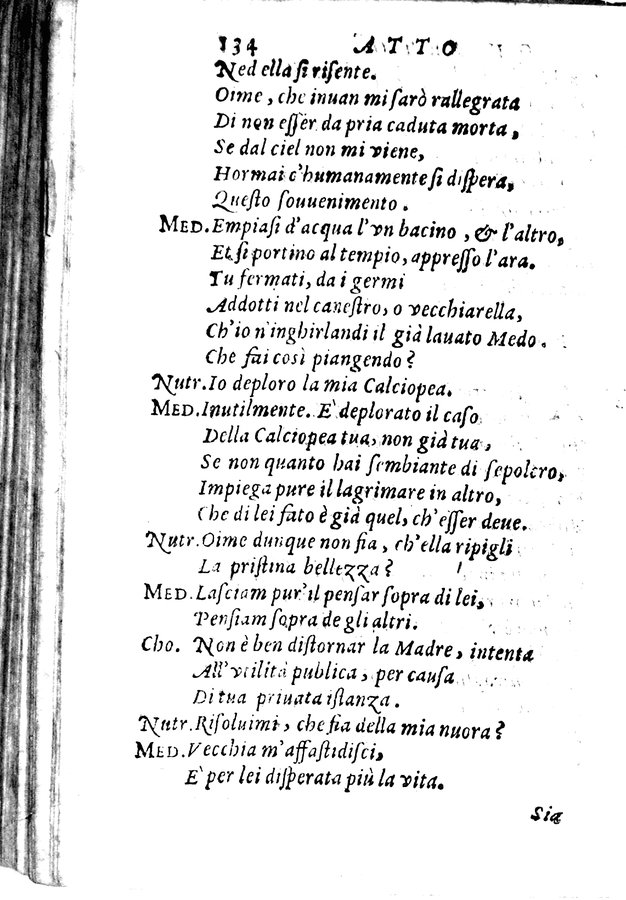 134 ATTO
Ned ella si risente.
Oime, che inuan mi sarò rallegrata
Di non esser da pria caduta morta,
Se dal ciel non mi viene,
Hormai c'humanamente si dispera,
Questo souuenimento.
MED. Empiasi d'acqua l'vn bacino, & l'altro,
Et si portino al tempio, appresso l'ara.
Tu fermati, da i germi
Addotti nel canestro, o vecchiarella,
Ch'io n'inghirlandi il già lauato Medo.
Che fai così piangendo?
Nutr. Io deploro la mia Calciopea.
MED. Inutilmente. E' deplorato il caso
Della Calciopea tua, non già tua,
Se non quanto hai sembiante di sepolcro,
Impiega pure il lagrimare in altro,
Che di lei fato è già quel, ch'esser deue.
Nutr. Oime dunque non fia, ch'ella ripigli
La pristina bellezza?
MED. Lasciam pur'il pensar sopra di lei,
Pensiam sopra de gli altri.
Cho. Non è ben distornar la Madre, intenta
All'vtilità publica, per causa
Di tua priuata istanza.
Nutr. Risoluimi, che fia della mia nuora?
MED. Vecchia m'affastidisci,
E' per lei disperata più la vita.
Sia